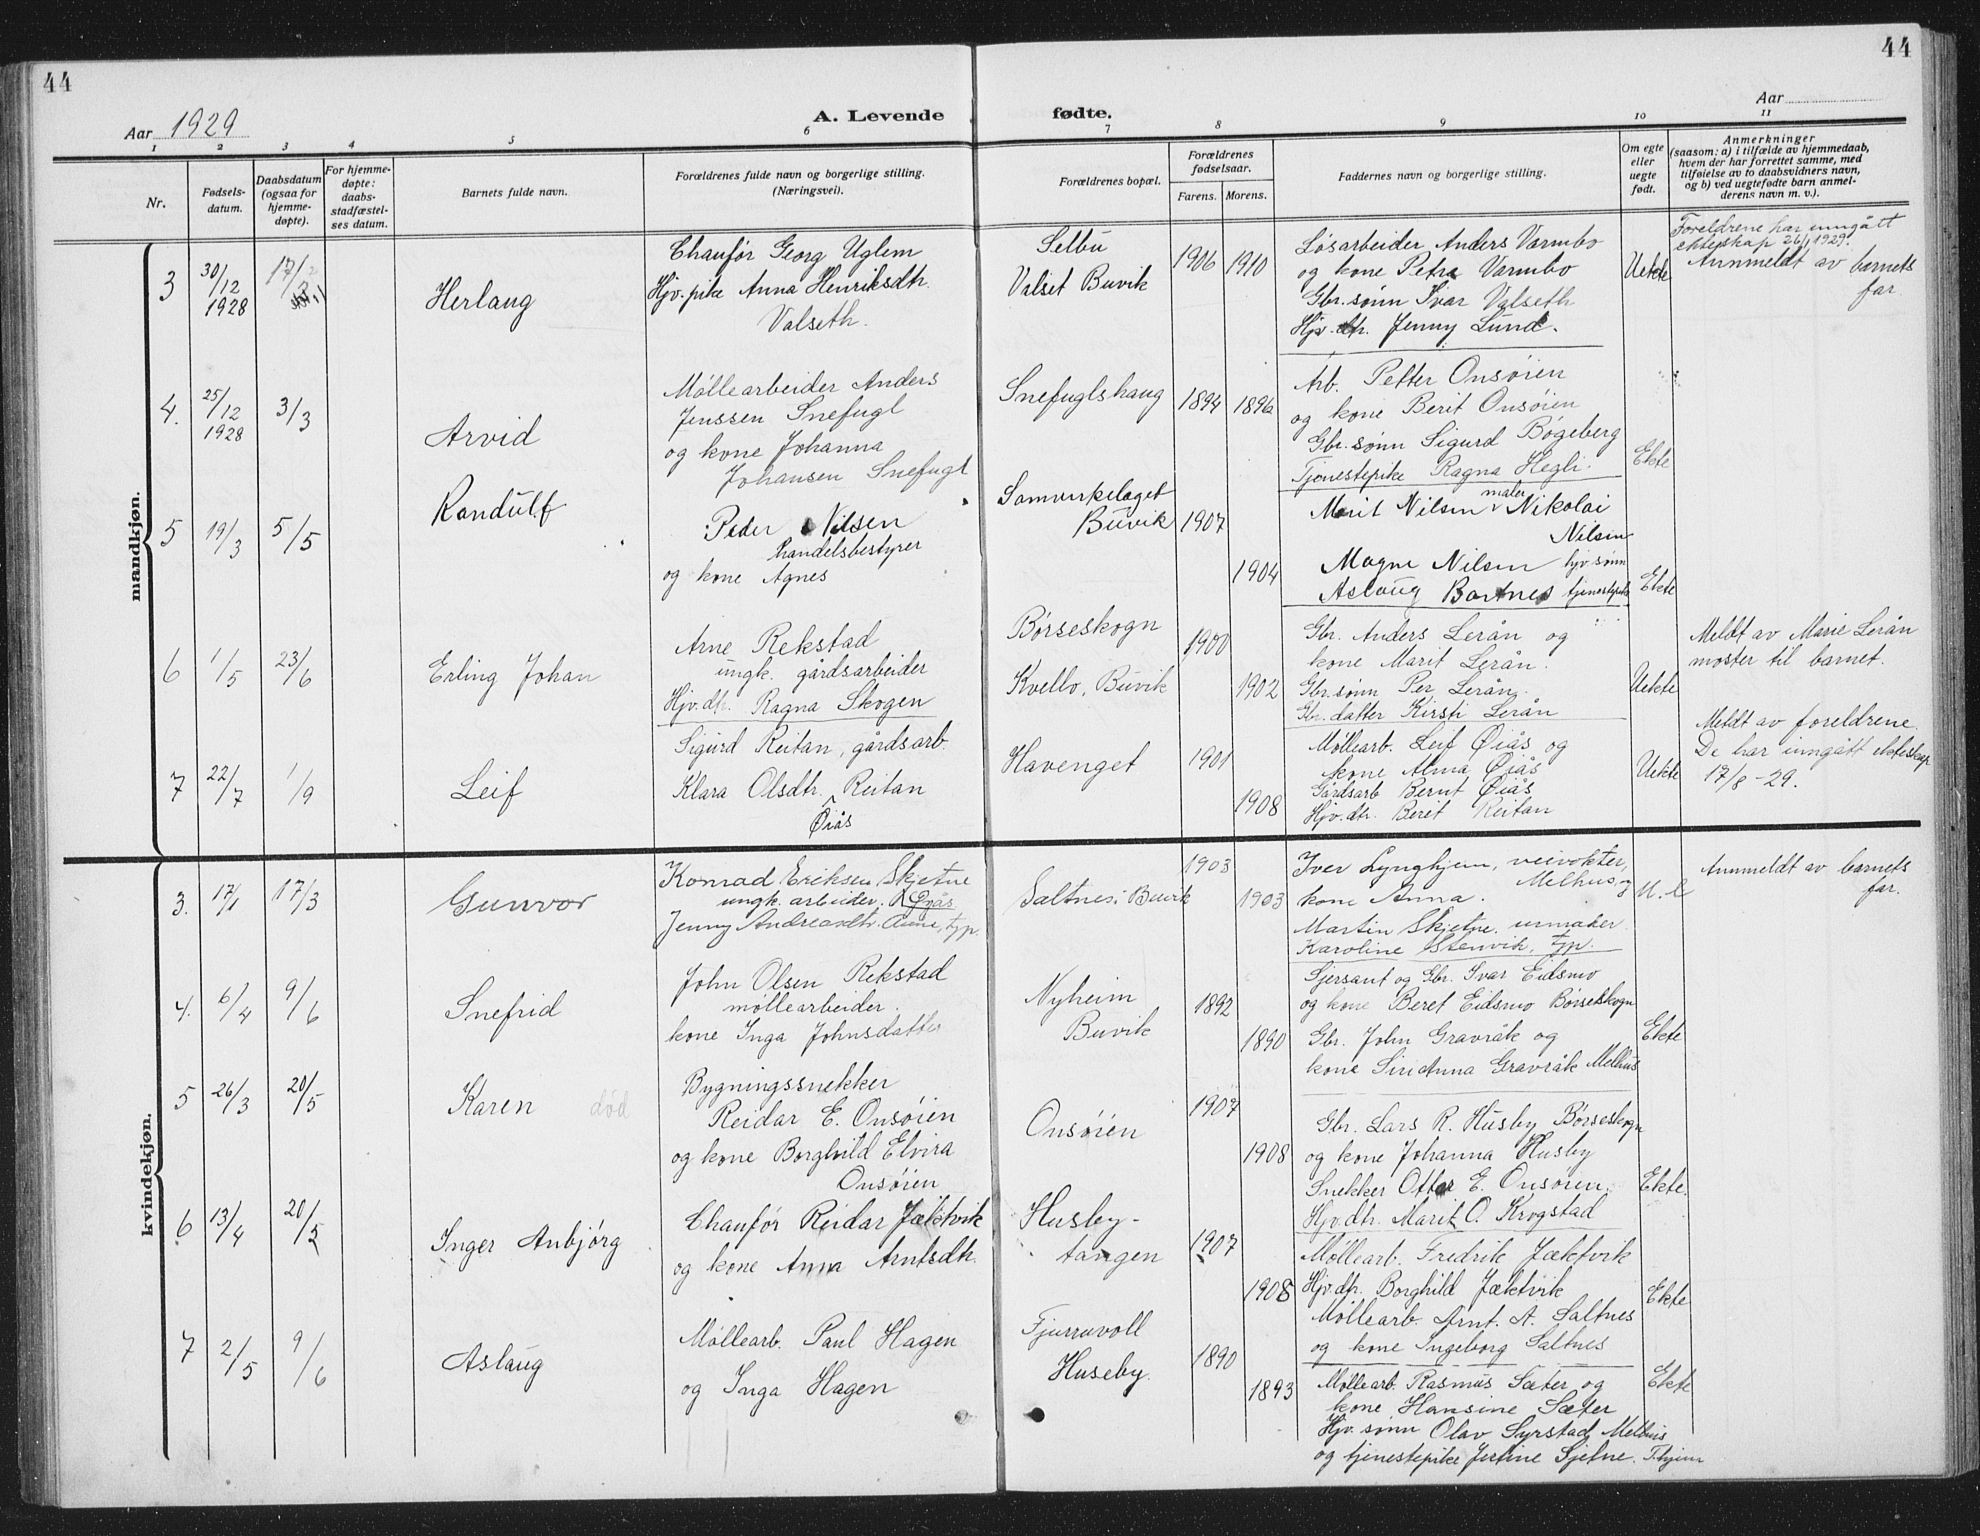 44
44
Aar 1929
A. Levende
fødte.
Aar
1 2 3 4 5 6 7 8 9 10 11
Nr.
Fødsels-
datum.
Daabsdatum
(ogsaa for
hjemme-
døpte).
For hjemme-
døpte:
daabs-
stadfæstel-
ses datum.
Barnets fulde navn.
Forældrenes fulde navn og borgerlige stilling.
(Næringsvei).
Forældrenes bopæl.
Forældrenes
fødselsaar.
Farens. Morens.
Faddernes navn og borgerlige stilling.
Om egte
eller
uegte
født.
Anmerkninger
(saasom: a) i tilfælde av hjemmedaab,
hvem der har forrettet samme, med
tilføielse av to daabsvidners navn,
og b) ved uegtefødte barn anmel-
derens navn m. v.).
mandkjøn.
3
30/12
1928
17/2
Herlaug
Chaufør Georg Uglem
Hjv. pike Anna Henriksdtr.
Valseth.
Selbu
Valset Buvik
1906 1910
Løsarbeider Anders Varmbo
og kone Petra Varmbo
Gbr. sønn Ivar Valseth
Hjv. dtr. Jenny Lund.
Uekte
Foreldrene har inngått
ekteskap 26/1 1929.
Annmeldt av barnets
far.
4.
25/12
1928
3/3
Arvid
Møllearbeider Anders
Jenssen Snefugl
og kone Johanna
Johansen Snefugl
Snefuglshaug
1894 1896
Arb. Petter Onsøien
og kone Berit Onsøien
Gbr. sønn Sigurd Bogeberg
Tjenestepike Ragna Hegli.
Ekte
5
19/3
5/5
Randulf
Peder Nilsen
handelsbestyrer
og kone Agnes
Samvirkelaget
Buvik
1907
1904
Marit Nilsen maler Nikolai
Nilsen
Magne Nilsen hjv. sønn
Aslaug Bartnes tjenestepike
Ekte
6
1/5
23/6
Erling Johan
Arne Rekstad
ungk. gårdsarbeider
Hjv. dtr. Ragna Skogen
Børseskogn
Kvello, Buvik
1900
1902
Gbr. Anders Lerån og
kone Marit Lerån.
Gbr. sønn Per Lerån.
Gbr. datter Kirsti Lerån
Uekte
Meldt av Marie Lerån
moster til barnet.
7
22/7
1/9
Leif
Sigurd Reitan, gårdsarb.
Klara Olsdtr. Reitan
Øiås
Havenget
1901
1908
Møllearb. Leif Øiås og
kone Alma Øiås
Gårdsarb Bernt Øiås
Hjv. dtr. Berit Reitan
Uekte
Meldt av foreldrene
De har inngått ekteskap
17/8 - 29.
kvindekjøn.
3.
17/1
17/3
Gunvor
Konrad Eriksen Skjetne
ungk. arbeider.
Jenny Andreasdtr. Aune, typ.
Saltnes. Buvik
1903
1903
Iver Lynghjem, veivokter,
Melhus, og
kone Anna.
Martin Skjetne. urmaker
Karoline Stenvik, typ.
U. e
Annmeldt av barnets
far.
4.
6/4
9/6
Snefrid
John Olsen Rekstad
møllearbeider.
kone Inga Johnsdatter
Nyheim
Buvik
1892
1890
Sjersant og Gbr. Ivar Eidsmo
og kone Beret Eidsmo Børseskogn
Gbr. John Gravråk og
kone Siri Anna Gravråk Melhus
Ekte
5
26/3
20/5
Karen død
Bygningssnekker
Reidar E. Onsøien
og kone Borghild Elvira
Onsøien
Onsøien
1907
1908
Gbr. Lars R. Husby Børseskogn
og kone Johanna Husby
Snekker Ottar E. Onsøien.
Hjv. dtr. Marit O. Krogstad
Ekte.
6
13/4
20/5
Inger Anbjørg
Chaufør Reidar Jæktvik
og kone Anna Arntsdtr.
Husby-
tangen
1907
1908
Møllearb. Fredrik Jæktvik
Hjv. dtr. Borghild Jæktvik
Møllearb. Arnt. A. Saltnes
og kone Ingeborg Saltnes
Ekte
7
2/5
9/6
Aslaug
Møllearb. Paul Hagen
og Inga Hagen
Fjurruvoll
Huseby.
1890
1893
Møllearb. Rasmus Sæter og
kone Hansine Sæter
Hjv. sønn Olav Syrstad Melhus
og tjenestepike Jertine Sjetne.
Ekte